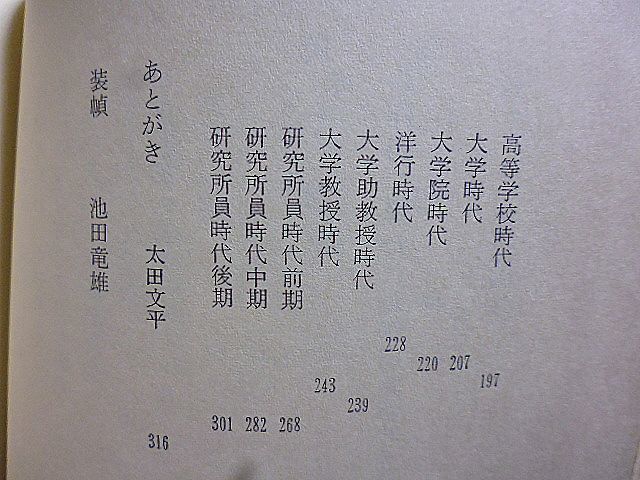 高等学校時代 197
大学時代 207
大学院時代 220
洋行時代 228
大学助教授時代 239
大学教授時代 243
研究所員時代前期 268
研究所員時代中期 282
研究所員時代後期 301
あとがき 太田文平 316
装幀 池田竜雄